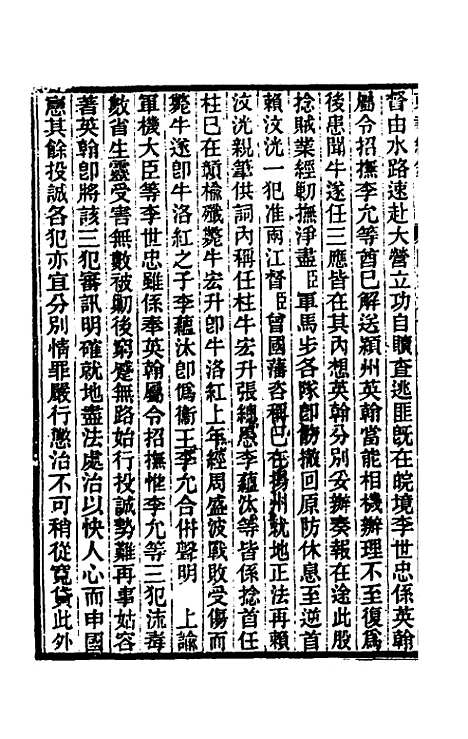 督由水路速赴大營立功自贖查逃匪既在皖境李世忠係英翰
屬令招撫李允等酋已解送潁州英翰當能相機辦理不至復為
後患聞牛遂任三應皆在其內想英翰分別妥辦奏報在途此股
捻賊業經勦撫淨盡臣軍馬步各隊即飭撤回原防休息至逆首
賴汶洸一犯准兩江督臣曾國藩咨稱已在揚州就地正法再賴
汶洸親筆供詞內稱任柱牛宏升張總愚李蘊汰等皆係捻首任
柱已在贛榆殲斃牛宏升即牛洛紅上年經周盛波戰敗受傷而
斃牛遂即牛洛紅之子李蘊汰即偽衞王李允合併聲明　上諭
軍機大臣等李世忠雖係奉英翰屬令招撫惟李允等三犯流毒
數省生靈受害無數被勦後窮蹙無路始行投誠勢難再事姑容
著英翰即將該三犯審訊明確就地盡法處治以快人心而申國
憲其餘投誠各犯亦宜分別情罪嚴行懲治不可稍從寬貸此外